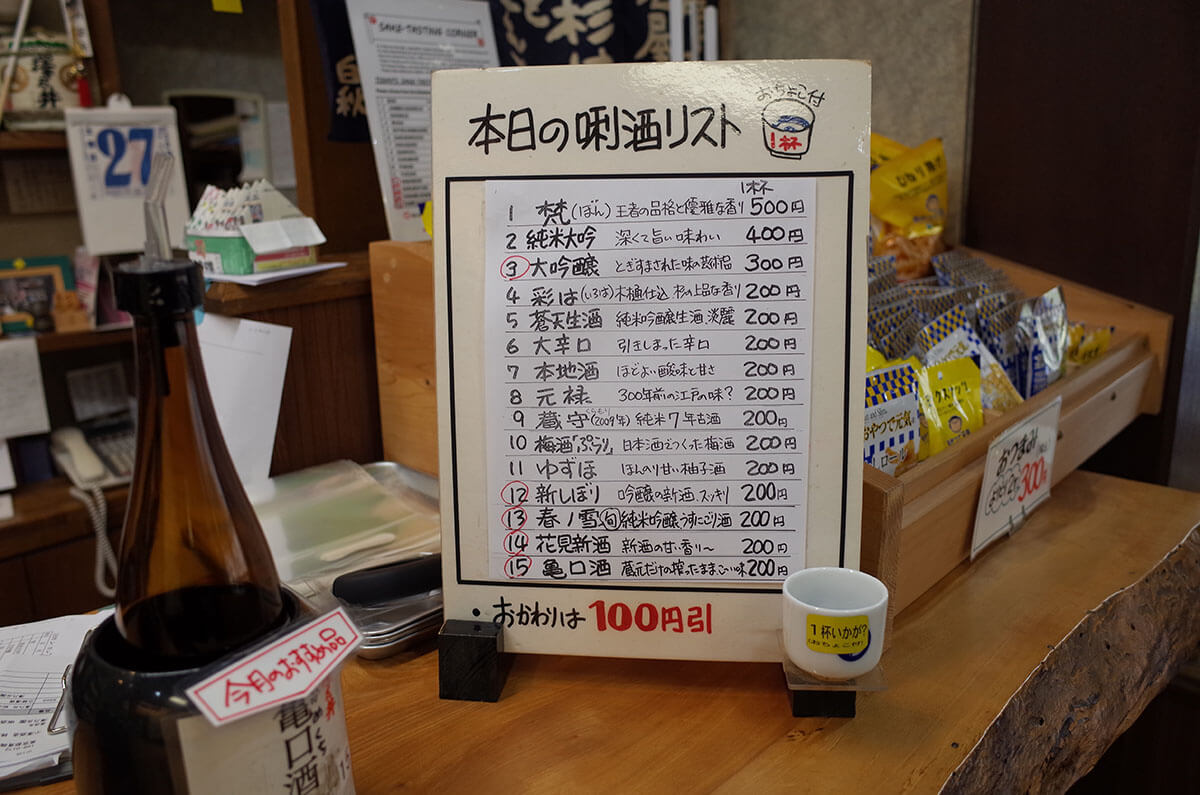 本日の唎酒リスト
おちょこ付
1杯
1杯
1 梵(ぼん) 王者の品格と優雅な香り 500円
2 純米大吟 深くて旨い味わい 400円
3 大吟醸 とぎすまされた味の芸術品 300円
4 彩は(いろは) 木桶仕込 杉の上品な香り 200円
5 蒼天生酒 純米吟醸生酒 淡麗 200円
6 大辛口 引きしまった辛口 200円
7 本地酒 ほどよい酸味と甘さ 200円
8 元禄 300年前の江戸の味? 200円
9 蔵守(2009年) 純米7年古酒 200円
10 梅酒「ぷらり」 日本酒でつくった梅酒 200円
11 ゆずほ ほんのり甘い柚子酒 200円
12 新しぼり 吟醸の新酒、スッキリ 200円
13 春ノ雪 旬 純米吟醸うすにごり酒 200円
14 花見新酒 新酒の甘い香り〜 200円
15 亀口酒 蔵元だけの搾ったまま、こい味 200円
おかわりは 100円引
1杯いかが?
(おちょこ付)
今月のおすすめ品
亀口酒
27
SAKE-TASTING CORNER
おつまみ
300円
おやつで元気